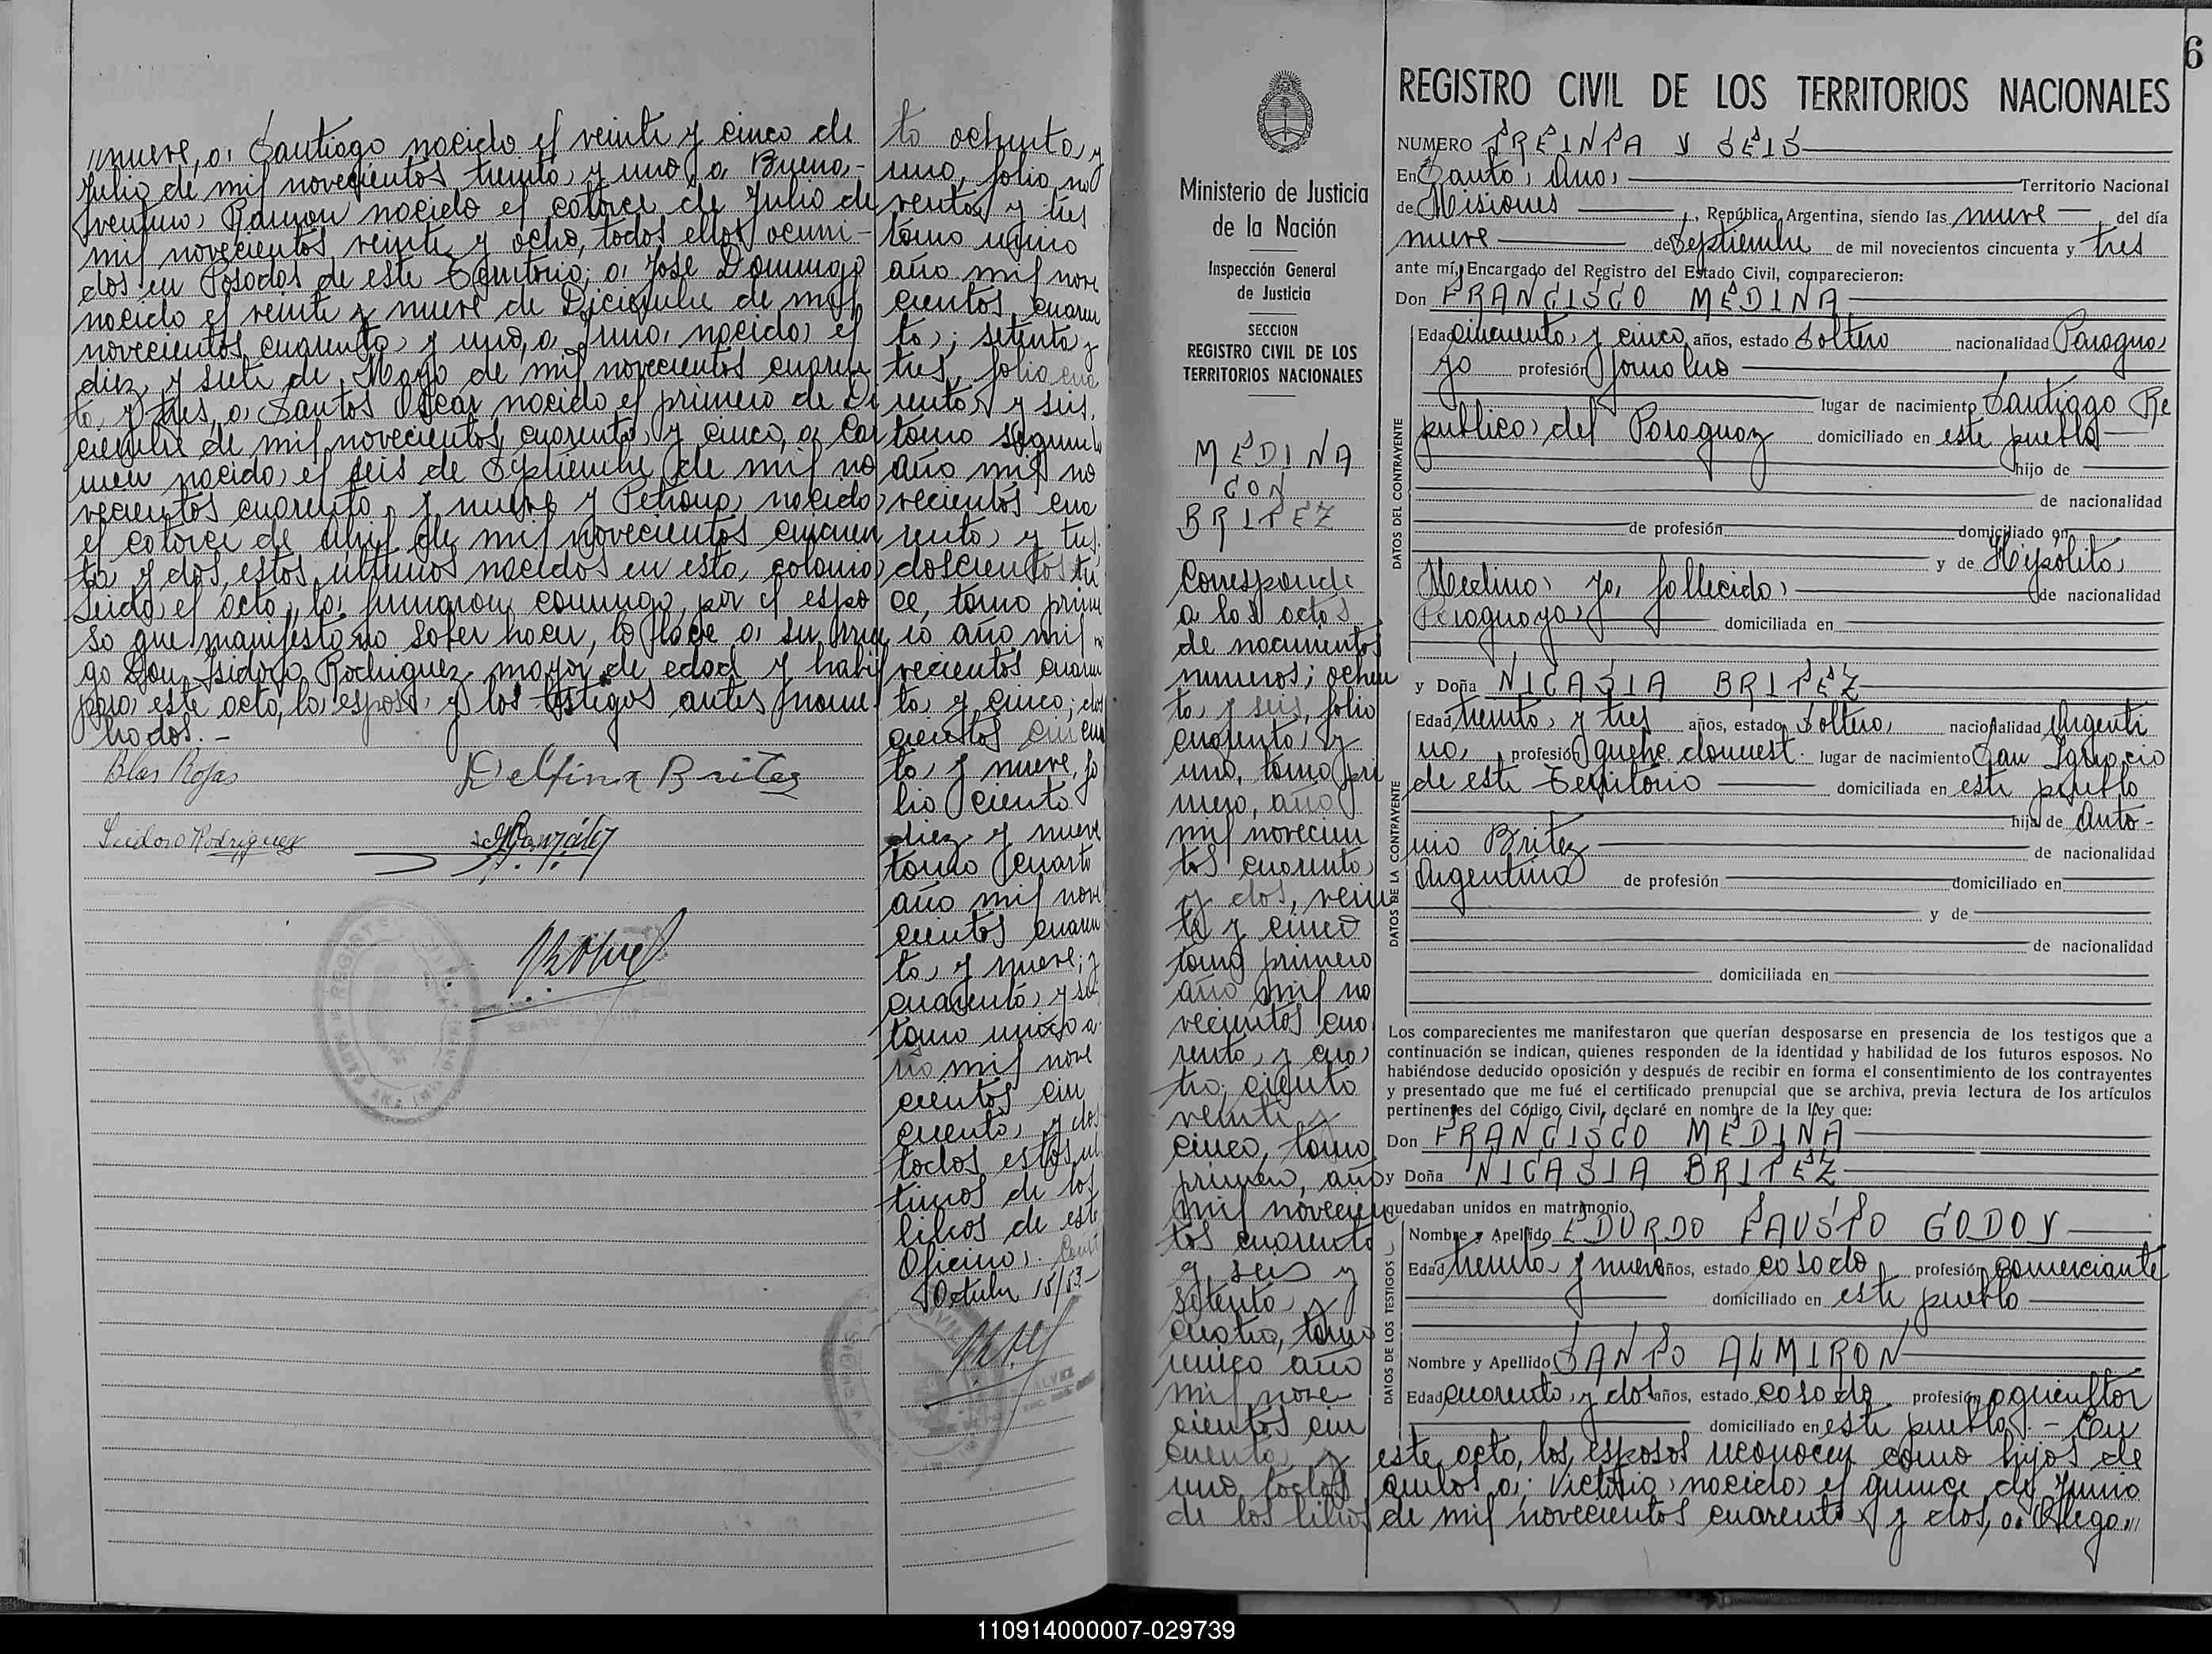 nueve, a Santiago nacido el veinte y cinco de
Julio de mil novecientos treinta y uno, a Buena-
ventura Ramon nacido el catorce de Julio de
mil novecientos veinte y ocho, todos ellos ocurri-
dos en Posadas de este Territorio; a Jose Domingo
nacido el veinte y nueve de Diciembre de mil
novecientos cuarenta y uno, a nacida el
diez y siete de Mayo de mil novecientos cuaren
ta y tres, a Santos Oscar nacido el primero de Di
ciembre de mil novecientos cuarenta y cinco, a Car
men nacida el seis de Septiembre de mil no
vecientos cuarenta y nueve y Petrona nacida
el catorce de Abril de mil novecientos cincuen
ta y dos, estos ultimos nacidos en esta colonia
Leida el acta, la firmaron conmigo, por el espo
so que manifestó no saber hacer, lo hace a su rue
go Don Isidoro Rodriguez mayor de edad y habil
para este acto, la esposa y los testigos antes nom
brados.-
Blas Rojas
Delfina Britez
Isidoro Rodriguez
Gonzáles
to ochenta y
uno, folio no
venta y tres
tomo unico
año mil nove
cientos cuaren
ta; setenta y
tres, folio cua
renta y seis,
tomo segundo
año mil no
vecientos cua
renta y tres
doscientos tre
ce, tomo prime
ro año mil no
vecientos cuaren
ta y cinco; dos
cientos cincuen
ta y nueve, fo
lio ciento
diez y nueve
tomo cuarto
año mil nove
cientos cuaren
ta y nueve; y
cuarenta y seis
tomo unico a
ño mil nove
cientos cin
cuenta y dos
todos estos ul
timos de los
libros de esta
Oficina.
Octubre 15/53-
6
Ministerio de Justicia
de la Nación
Inspección General
de Justicia
SECCION
REGISTRO CIVIL DE LOS
TERRITORIOS NACIONALES
MEDINA
CON
BRITEZ
Corresponde
a las actas
de nacimientos
numeros; ochen
ta y seis, folio
cuarenta y
uno, tomo pri
mero, año
mil novecien
tos cuarenta
y dos, vein
te y cinco
tomo primero
año mil no
vecientos cua
renta y cua
tro; ciento
veinte y
cinco, tomo
primero, año
mil novecien
tos cuarenta
y seis y
setenta y
cuatro, tomo
unico año
mil nove
cientos cin
cuenta y
uno todos
de los libros
REGISTRO CIVIL DE LOS TERRITORIOS NACIONALES
NUMERO TREINTA Y SEIS
En Santa Ana, Territorio Nacional
de Misiones, República Argentina, siendo las nueve del día
nueve de Septiembre de mil novecientos cincuenta y tres
ante mí, Encargado del Registro del Estado Civil, comparecieron:
Don FRANCISCO MEDINA
DATOS DEL CONTRAYENTE
Edad cincuenta y cinco años, estado soltero nacionalidad Paragua
yo profesión jornalero
lugar de nacimiento Santiago Re
publica del Paraguay domiciliado en este pueblo
hijo de
de nacionalidad
de profesión domiciliado en
y de Hipolita
Medina ya fallecida de nacionalidad
Paraguaya domiciliada en
y Doña NICASIA BRITEZ
DATOS DE LA CONTRAYENTE
Edad treinta y tres años, estado soltera nacionalidad Argenti
na, profesión quehc. domest. lugar de nacimiento San Ignacio
de este Territorio domiciliada en este pueblo
hija de Anto-
nio Britez de nacionalidad
Argentina de profesión domiciliado en
y de
de nacionalidad
domiciliada en
Los comparecientes me manifestaron que querían desposarse en presencia de los testigos que a
continuación se indican, quienes responden de la identidad y habilidad de los futuros esposos. No
habiéndose deducido oposición y después de recibir en forma el consentimiento de los contrayentes
y presentado que me fué el certificado prenupcial que se archiva, previa lectura de los artículos
pertinentes del Código Civil, declaré en nombre de la Ley que:
Don FRANCISCO MEDINA
y Doña NICASIA BRITEZ
quedaban unidos en matrimonio.
DATOS DE LOS TESTIGOS
Nombre y Apellido EDURDO FAUSTO GODOY
Edad treinta y nueve años, estado casado profesión comerciante
domiciliado en este pueblo
Nombre y Apellido SANTO ALMIRON
Edad cuarenta y dos años, estado casado profesión agricultor
domiciliado en este pueblo.- En
este acto, los esposos reconocen como hijos de
ambos a; Victoria nacida el quince de Junio
de mil novecientos cuarenta y dos, a Olega
110914000007-029739